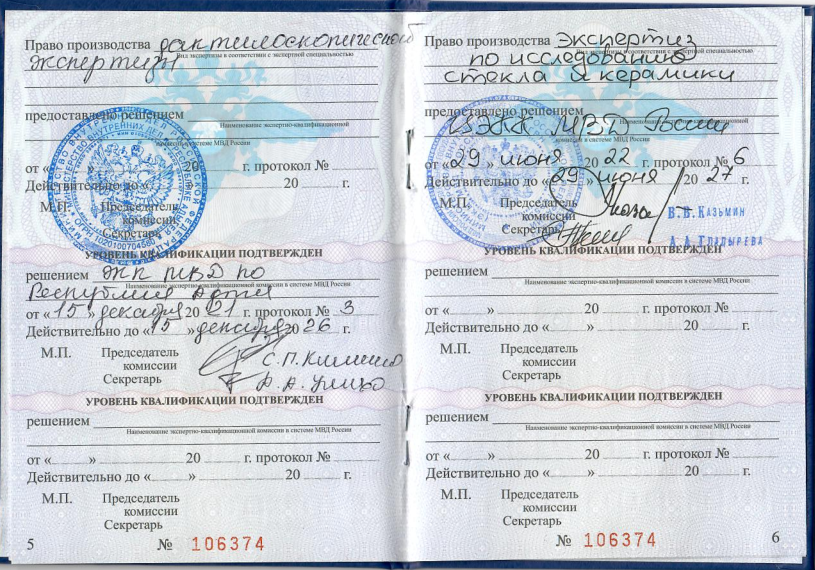 Право производства дактилоскопической
Вид экспертизы в соответствии с экспертной специальностью
экспертизы
предоставлено решением
Наименование экспертно-квалификационной
комиссии в системе МВД России
от « » 20 г. протокол №
Действительно до « » 20 г.
М.П. Председатель
комиссии
Секретарь
УРОВЕНЬ КВАЛИФИКАЦИИ ПОДТВЕРЖДЕН
решением ЭКП МВД по
Наименование экспертно-квалификационной комиссии в системе МВД России
Республике Адыгея
от «15» декабря 2021 г. протокол № 3
Действительно до «15» декабря 2026 г.
М.П. Председатель
комиссии С.П.
Секретарь
УРОВЕНЬ КВАЛИФИКАЦИИ ПОДТВЕРЖДЕН
решением
Наименование экспертно-квалификационной комиссии в системе МВД России
от « » 20 г. протокол №
Действительно до « » 20 г.
М.П. Председатель
комиссии
Секретарь
5 № 106374
Право производства экспертиз
Вид экспертизы в соответствии с экспертной специальностью
по исследованию
стекла и керамики
предоставлено решением
Наименование экспертно-квалификационной
МВД России
комиссии в системе МВД России
от «29» июня 2022 г. протокол № 6
Действительно до «29» июня 2027 г.
М.П. Председатель
комиссии В.В.КАЗЬМИН
Секретарь
А.А.
УРОВЕНЬ КВАЛИФИКАЦИИ ПОДТВЕРЖДЕН
решением
Наименование экспертно-квалификационной комиссии в системе МВД России
от « » 20 г. протокол №
Действительно до « » 20 г.
М.П. Председатель
комиссии
Секретарь
УРОВЕНЬ КВАЛИФИКАЦИИ ПОДТВЕРЖДЕН
решением
Наименование экспертно-квалификационной комиссии в системе МВД России
от « » 20 г. протокол №
Действительно до « » 20 г.
М.П. Председатель
комиссии
Секретарь
№ 106374 6